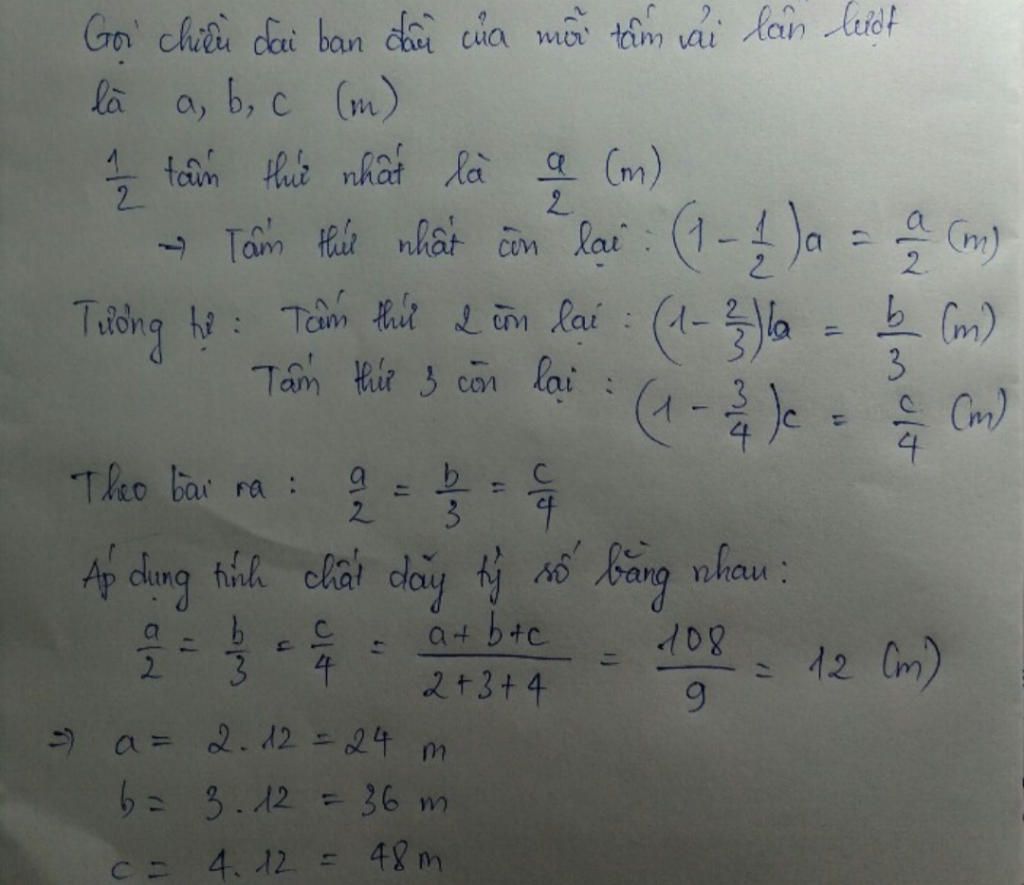 Gọi chiều dài ban đầu của mỗi tấm vải lần lượt
là a, b, c (m)
1/2 tấm thứ nhất là a/2 (m)
→ Tấm thứ nhất còn lại : (1 - 1/2)a = a/2 (m)
Tương tự : Tấm thứ 2 còn lại : (1 - 2/3)b = b/3 (m)
Tấm thứ 3 còn lại : (1 - 3/4)c = c/4 (m)
Theo bài ra : a/2 = b/3 = c/4
Áp dụng tính chất dãy tỷ số bằng nhau :
a/2 = b/3 = c/4 = (a+b+c)/(2+3+4) = 108/9 = 12 (m)
⇒ a = 2.12 = 24 m
b = 3.12 = 36 m
c = 4.12 = 48m